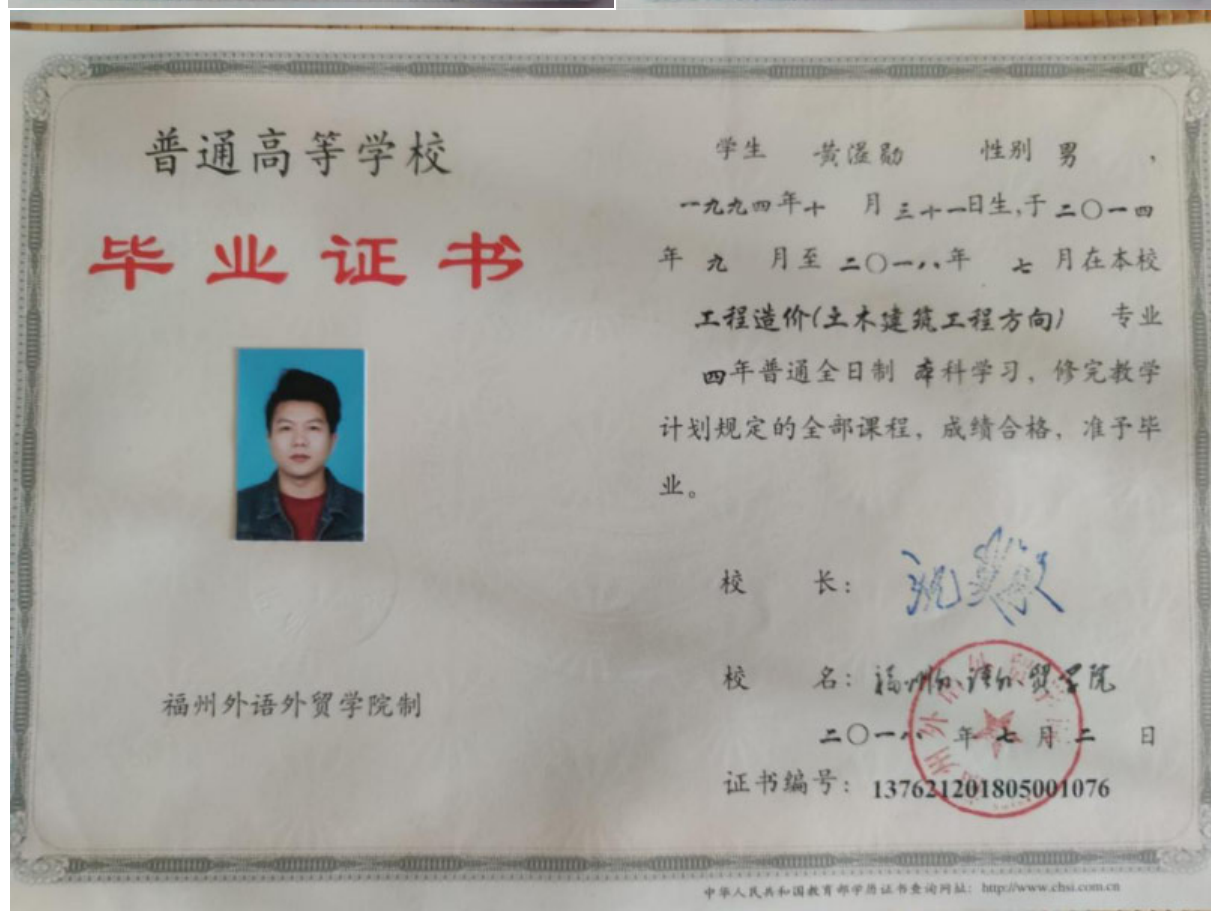 普通高等学校
毕业证书
福州外语外贸学院制
学生 黄溢勋 性别 男 ，
一九九四年十 月三十一日生,于二〇一四
年 九 月至 二〇一八年 七 月在本校
工程造价(土木建筑工程方向) 专业
四年普通全日制 本科学习，修完教学
计划规定的全部课程，成绩合格，准予毕
业。
校 长：
校 名：福州外语外贸学院
二〇一八 年 七 月 二 日
证书编号：137621201805001076
中华人民共和国教育部学历证书查询网址：http://www.chsi.com.cn